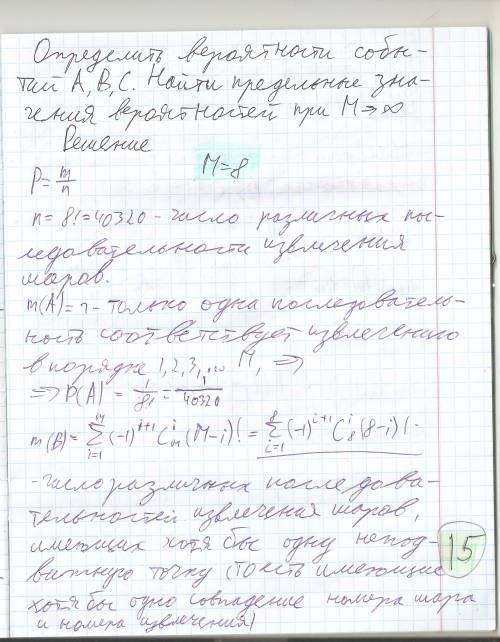 Определить вероятности собы-
тий А, В, С. Найти предельные зна-
чения вероятностей при М→∞
Решение
М=8
P=m/n
n=8!=40320 - число различных пос-
ледовательности извлечения
шаров.
m(A)=1 - только одна последователь-
ность соответствует извлечению
в порядке 1,2,3,... М, ⇒
⇒ P(A) = 1/8! = 1/40320
m(B)=∑_{i=1}^{M}(-1)^{i+1} C_M^i (M-i)! = ∑_{i=1}^{8}(-1)^{i+1} C_8^i (8-i)! -
-число различных последова-
тельностей извлечения шаров,
имеющих хотя бы одну непод-
вижную точку (то есть имеющие
хотя бы одно совпадение номера шара
и номера извлечения)
15